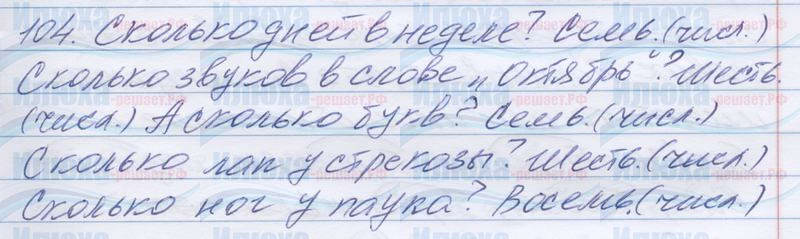 104. Сколько дней в неделе? Семь. (числ.)
Сколько звуков в слове „Октябрь“? Шесть.
(числ.) А сколько букв? Семь. (числ.)
Сколько лап у стрекозы? Шесть. (числ.)
Сколько ног у паука? Восемь. (числ.)